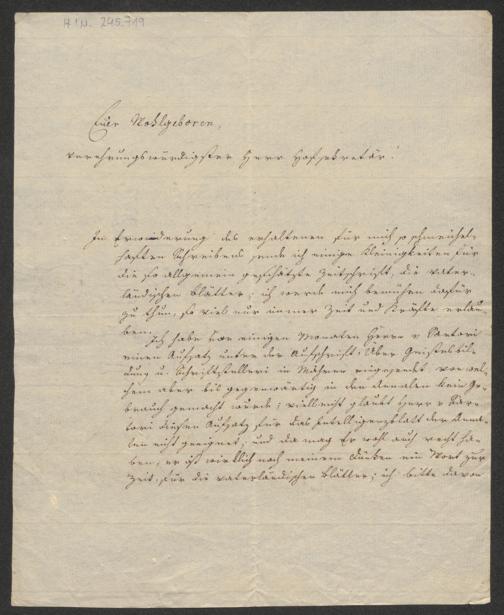 H.I.N. 245.719
Euer Wohlgeboren,
verehrungswürdigster Herr Hofsekretär!
In Erwiederung des erhaltenen für mich so schmeichel-
haften Schreibens sende ich einige Kleinigkeiten für
die so allgemein geschätzte Zeitschrift, die vater-
ländischen Blätter; ich werde mich bemühen dafür
zu thun, so viel nur immer Zeit und Kräfte erlau-
ben.
Ich habe vor einigen Monaten Herrn v Sartori
einen Aufsatz unter der Aufschrift: Über Geistesbil-
dung u. Schriftstellerei in Mähren eingesendet von wel-
chem aber bis gegenwärtig in den Annalen kein Ge-
brauch gemacht wurde; vielleicht glaubt Herr v Sar-
tori diesen Aufsatz für das Intelligenzblatt der Anna-
len nicht geeignet; und da mag Er wohl auch recht ha-
ben, er ist wirklich nach meinem Dünken ein Wort zur
Zeit, für die vaterländischen Blätter; ich bitte davon